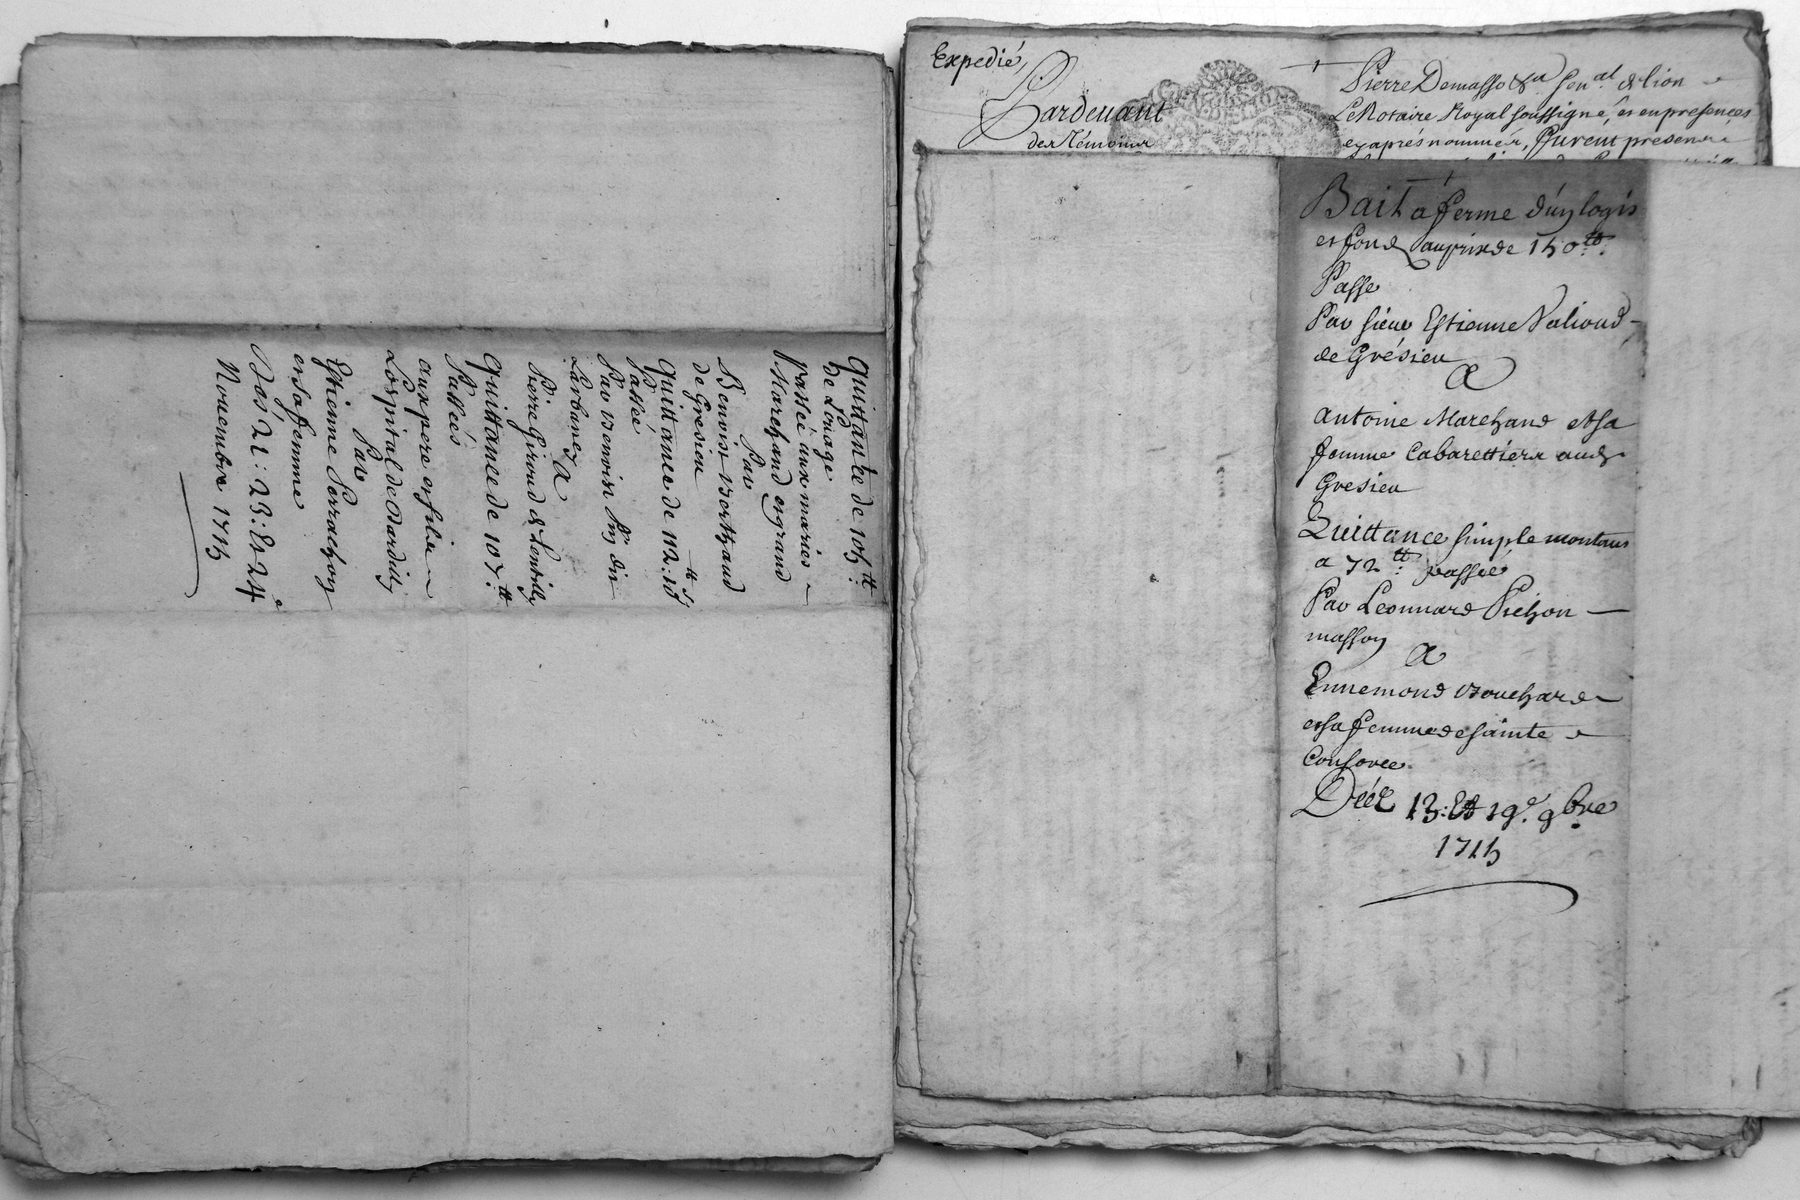 Quittance de 105tt:
de Louage
passée aux mariés
Marchand et grand
Par
Benoist Berthaud
de Gresieu
Quittance de 112tt: 10s
Passée
Par Benoist
A
Pierre Giroud de Lentilly
Quittance de 107tt:
Passées
aux pere et fils
Lospital de Dardilly
Par
Estienne Perrachon
et sa femme
Des 21: 23: Et 24e
Novembre 1715
Expedié,
Pardevant
des Témoins
Pierre Demasso &a Senal. de lion
Le Notaire Royal soussigné, et en presences
cy aprés nommés, furent presents
Bail a ferme d'un logis
et fond au prix de 150tt:
Passe
Par sieur Estienne Valioud
de Grésieu
A
Antoine Marchand et sa
femme Cabarettiers aud.
Gresieu
Quittance simple montant
a 72tt: passée
Par Leonnard Pichon
masson
A
Ennemond Bouchard
et sa femme de sainte
Consorce.
Des 13: Et 19e. 9bre
1715